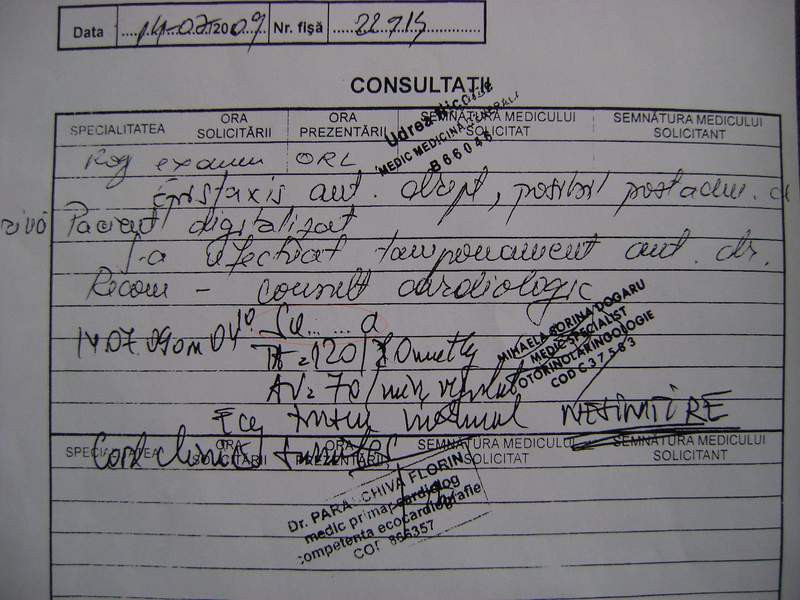 Data 14-07-2009 Nr. fişă 22715
CONSULTAŢII
SPECIALITATEA ORA SOLICITĂRII ORA PREZENTĂRII SEMNĂTURA MEDICULUI SOLICITAT SEMNĂTURA MEDICULUI SOLICITANT
Udrea Nicolae
MEDIC MEDICINA GENERALA
866045
Rog examen ORL
Epistaxis ant. drept, posibil postadm.
Pacient digitalizat
S-a efectuat tamponament ant. dr.
Recom - consult cardiologic
MIHAELA SORINA DOGARU
MEDIC SPECIALIST
OTORINOLARINGOLOGIE
COD C37583
14.07.09 ... a
TA = 120/70 mmHg
AV = 70/min regulat
normal
Cord clinic
SPECIALITATEA ORA SOLICITĂRII ORA PREZENTĂRII SEMNĂTURA MEDICULUI SOLICITAT SEMNĂTURA MEDICULUI SOLICITANT
Dr. PARASCHIVA FLORIN
medic primar cardiolog
competenta ecocardiografie
COD 866357